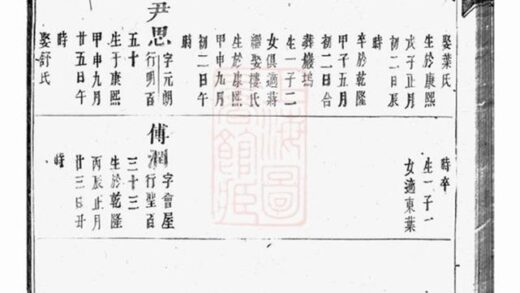 娶葉氏
生於康熙
戊子正月
初二日辰
時
卒於乾隆
甲子五月
初二日合
葬巖塢
生一子二
女俱適蔣
繼娶樓氏
生於康熙
甲申九月
初二日午
時
尹思
字元朗
行明百
五十
生于康熙
甲申九月
廿五日午
時
娶舒氏
時卒
生一子一
女適東葉
傅潤
字會
行聖百
三十三
生於乾隆
丙辰正月
廿三日丑
時